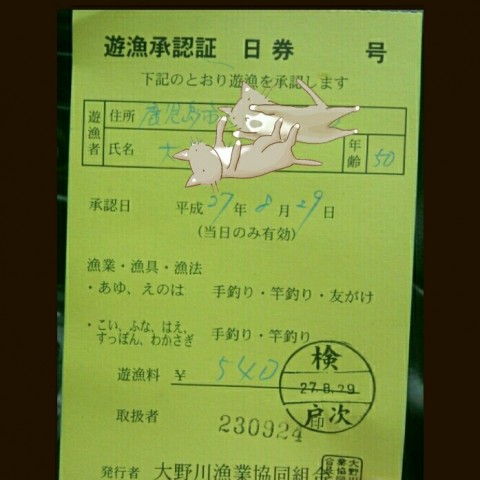 遊漁承認証 日券 号
下記のとおり遊漁を承認します
遊漁者 住所 鹿児島市
氏名 年齢 50
承認日 平成27年8月29日
(当日のみ有効)
漁業・漁具・漁法
・あゆ、えのは 手釣り・竿釣り・友がけ
・こい、ふな、はえ、
すっぽん、わかさぎ 手釣り・竿釣り
遊漁料 ¥ 540
検
27.8.29
取扱者 230924 印
発行者 大野川漁業協同組合